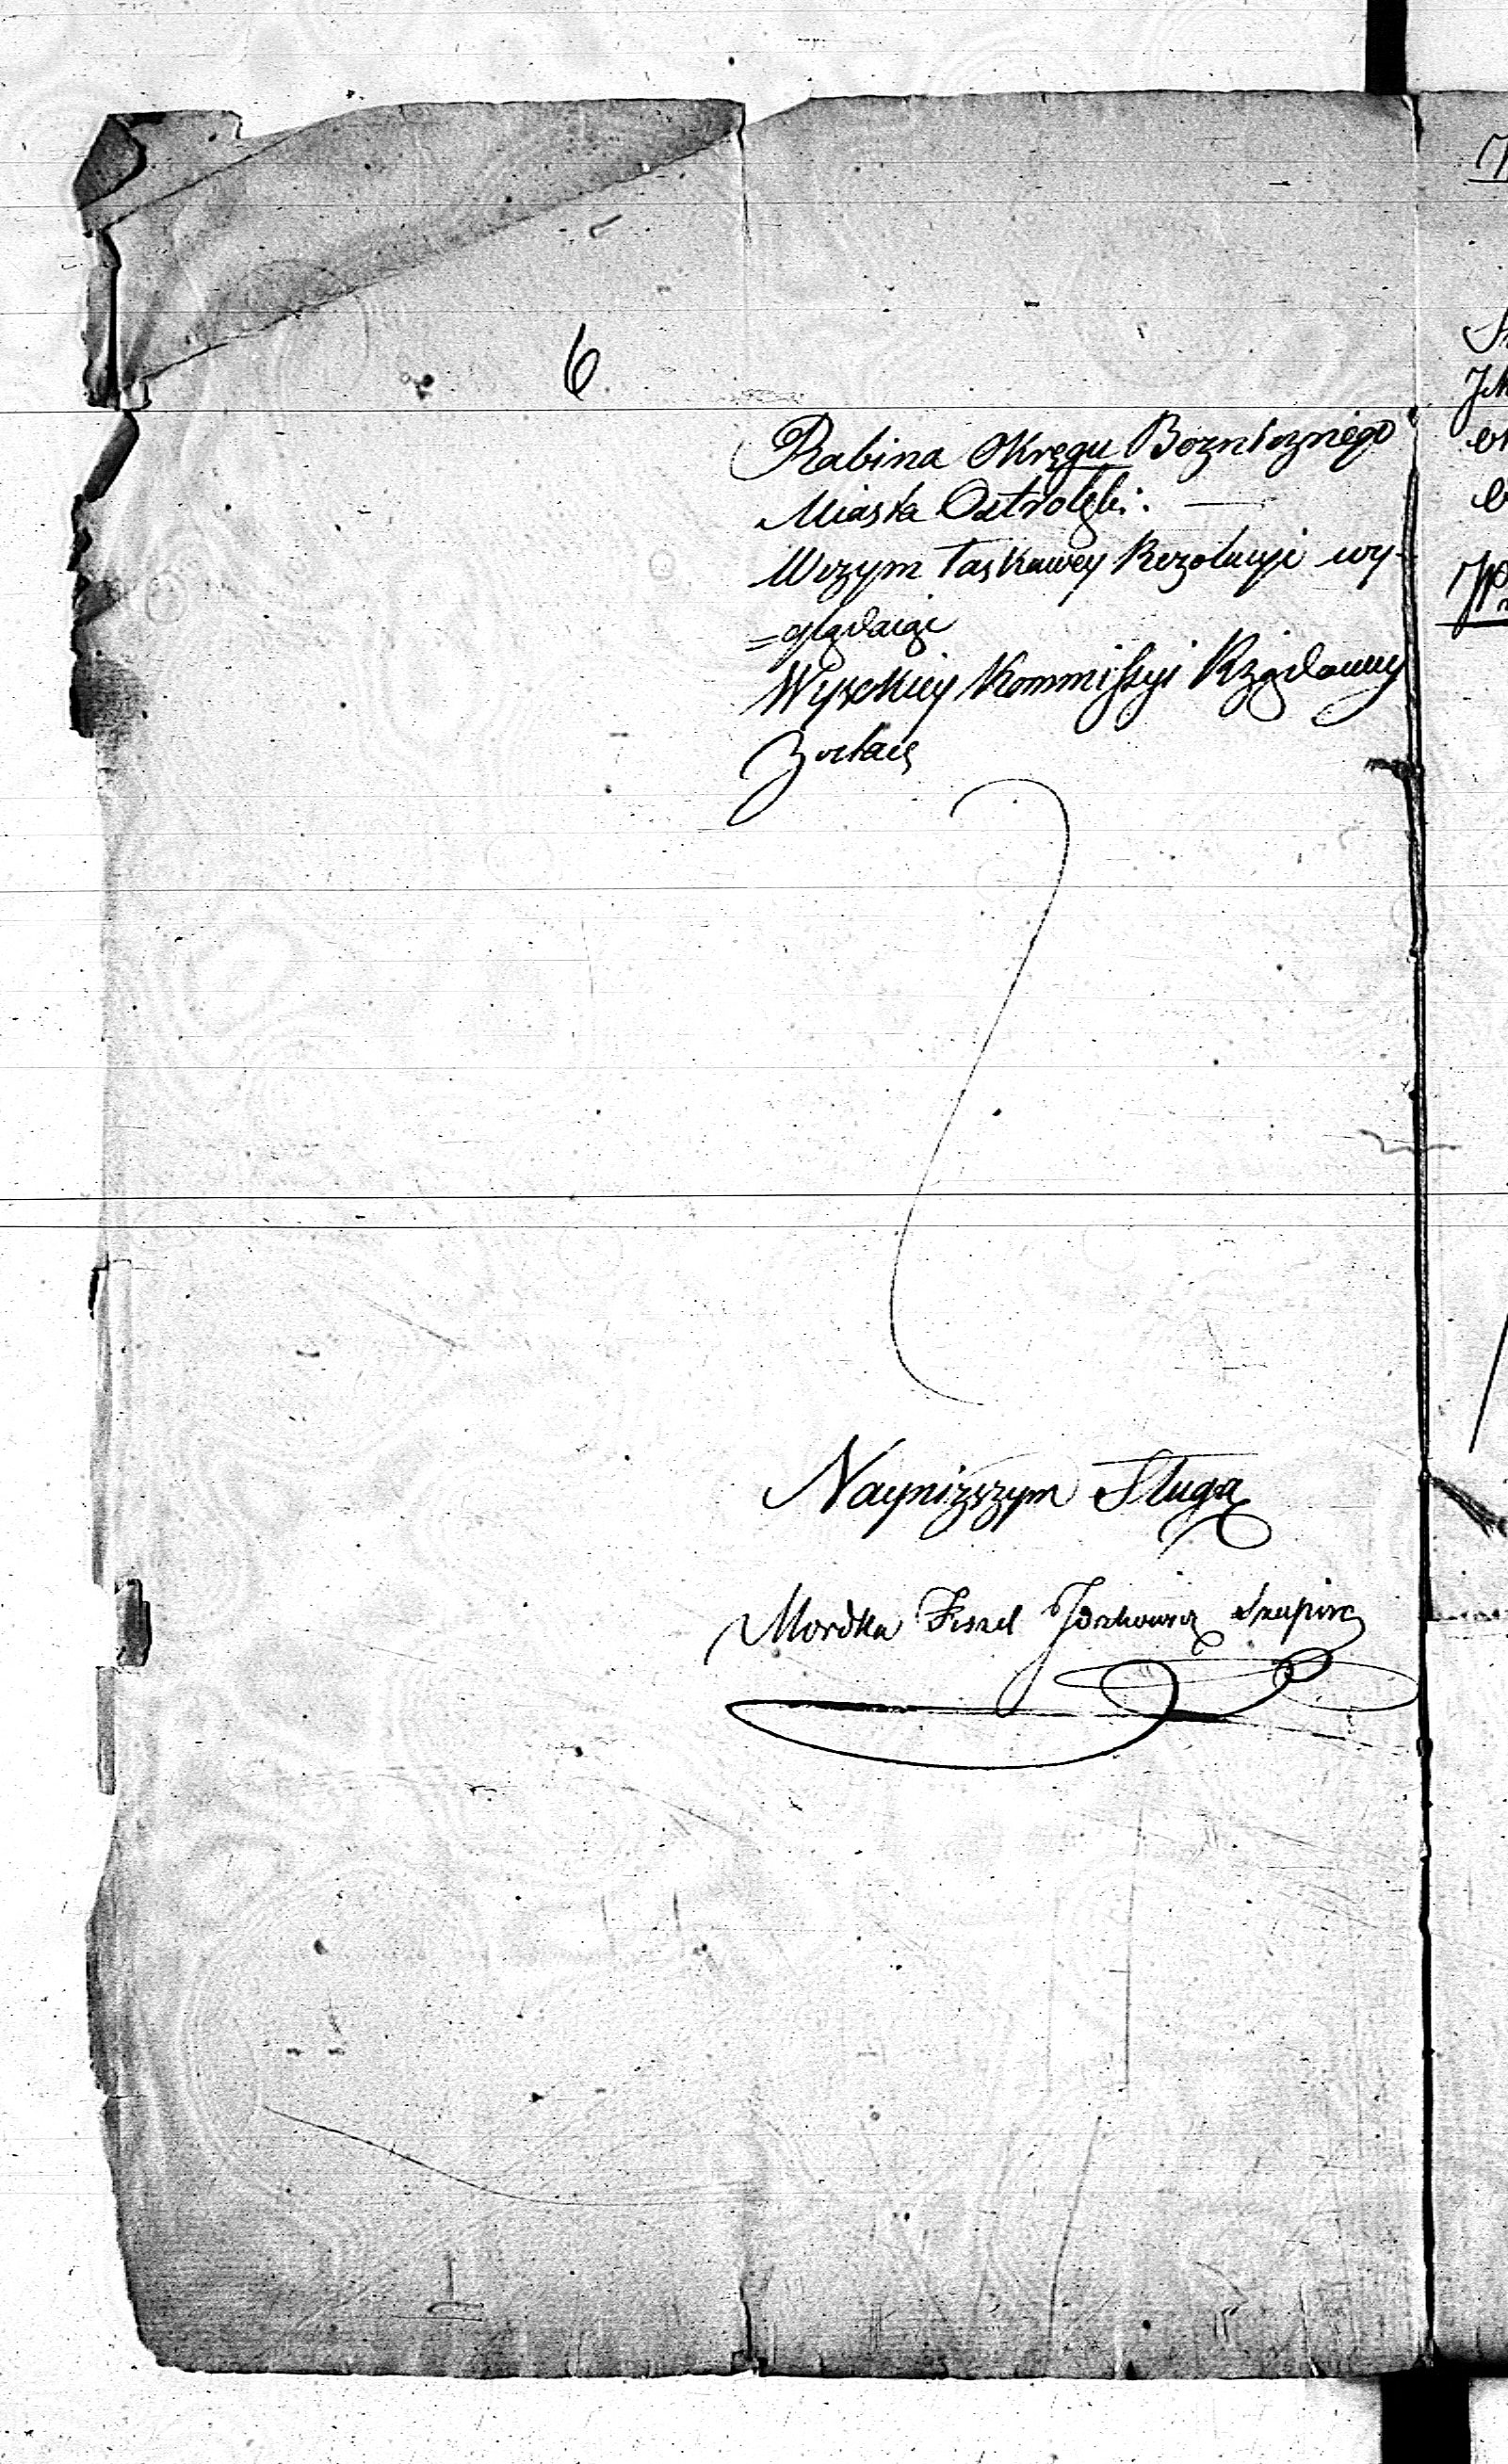 6
Rabina Okręgu Boznicznego
Miasta Ostrołęki. —
W czym łaskawey Rezolucyi wy-
=glądaiąc
Wysokiey Kommissyi Rządowey
Zostaię
Nayniższym Sługą
Mordka Fiszel Joskowicz Szapira